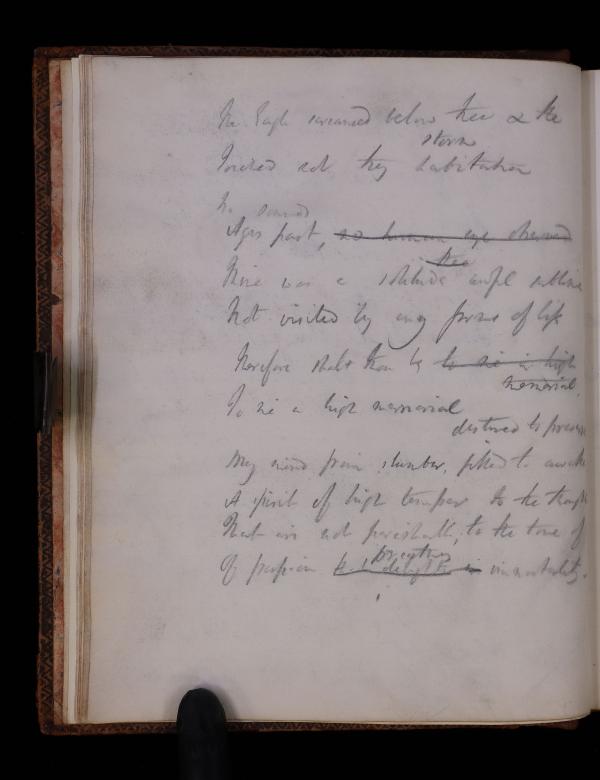 The Eagle screamed below thee & the
storm
Touched not thy habitation
No sound
Ages past, no human eye observed
thee
Thine was a solitude awful sublime
Not visited by any forms of life
Therefore shalt thou be to me in high
memorial.
To me a high memorial
destined to preserve
My mind from slumber, fitted to awake
A spirit of high temper to the thoughts
That are not perishable, to the tone of
Of passion breathing immortality.